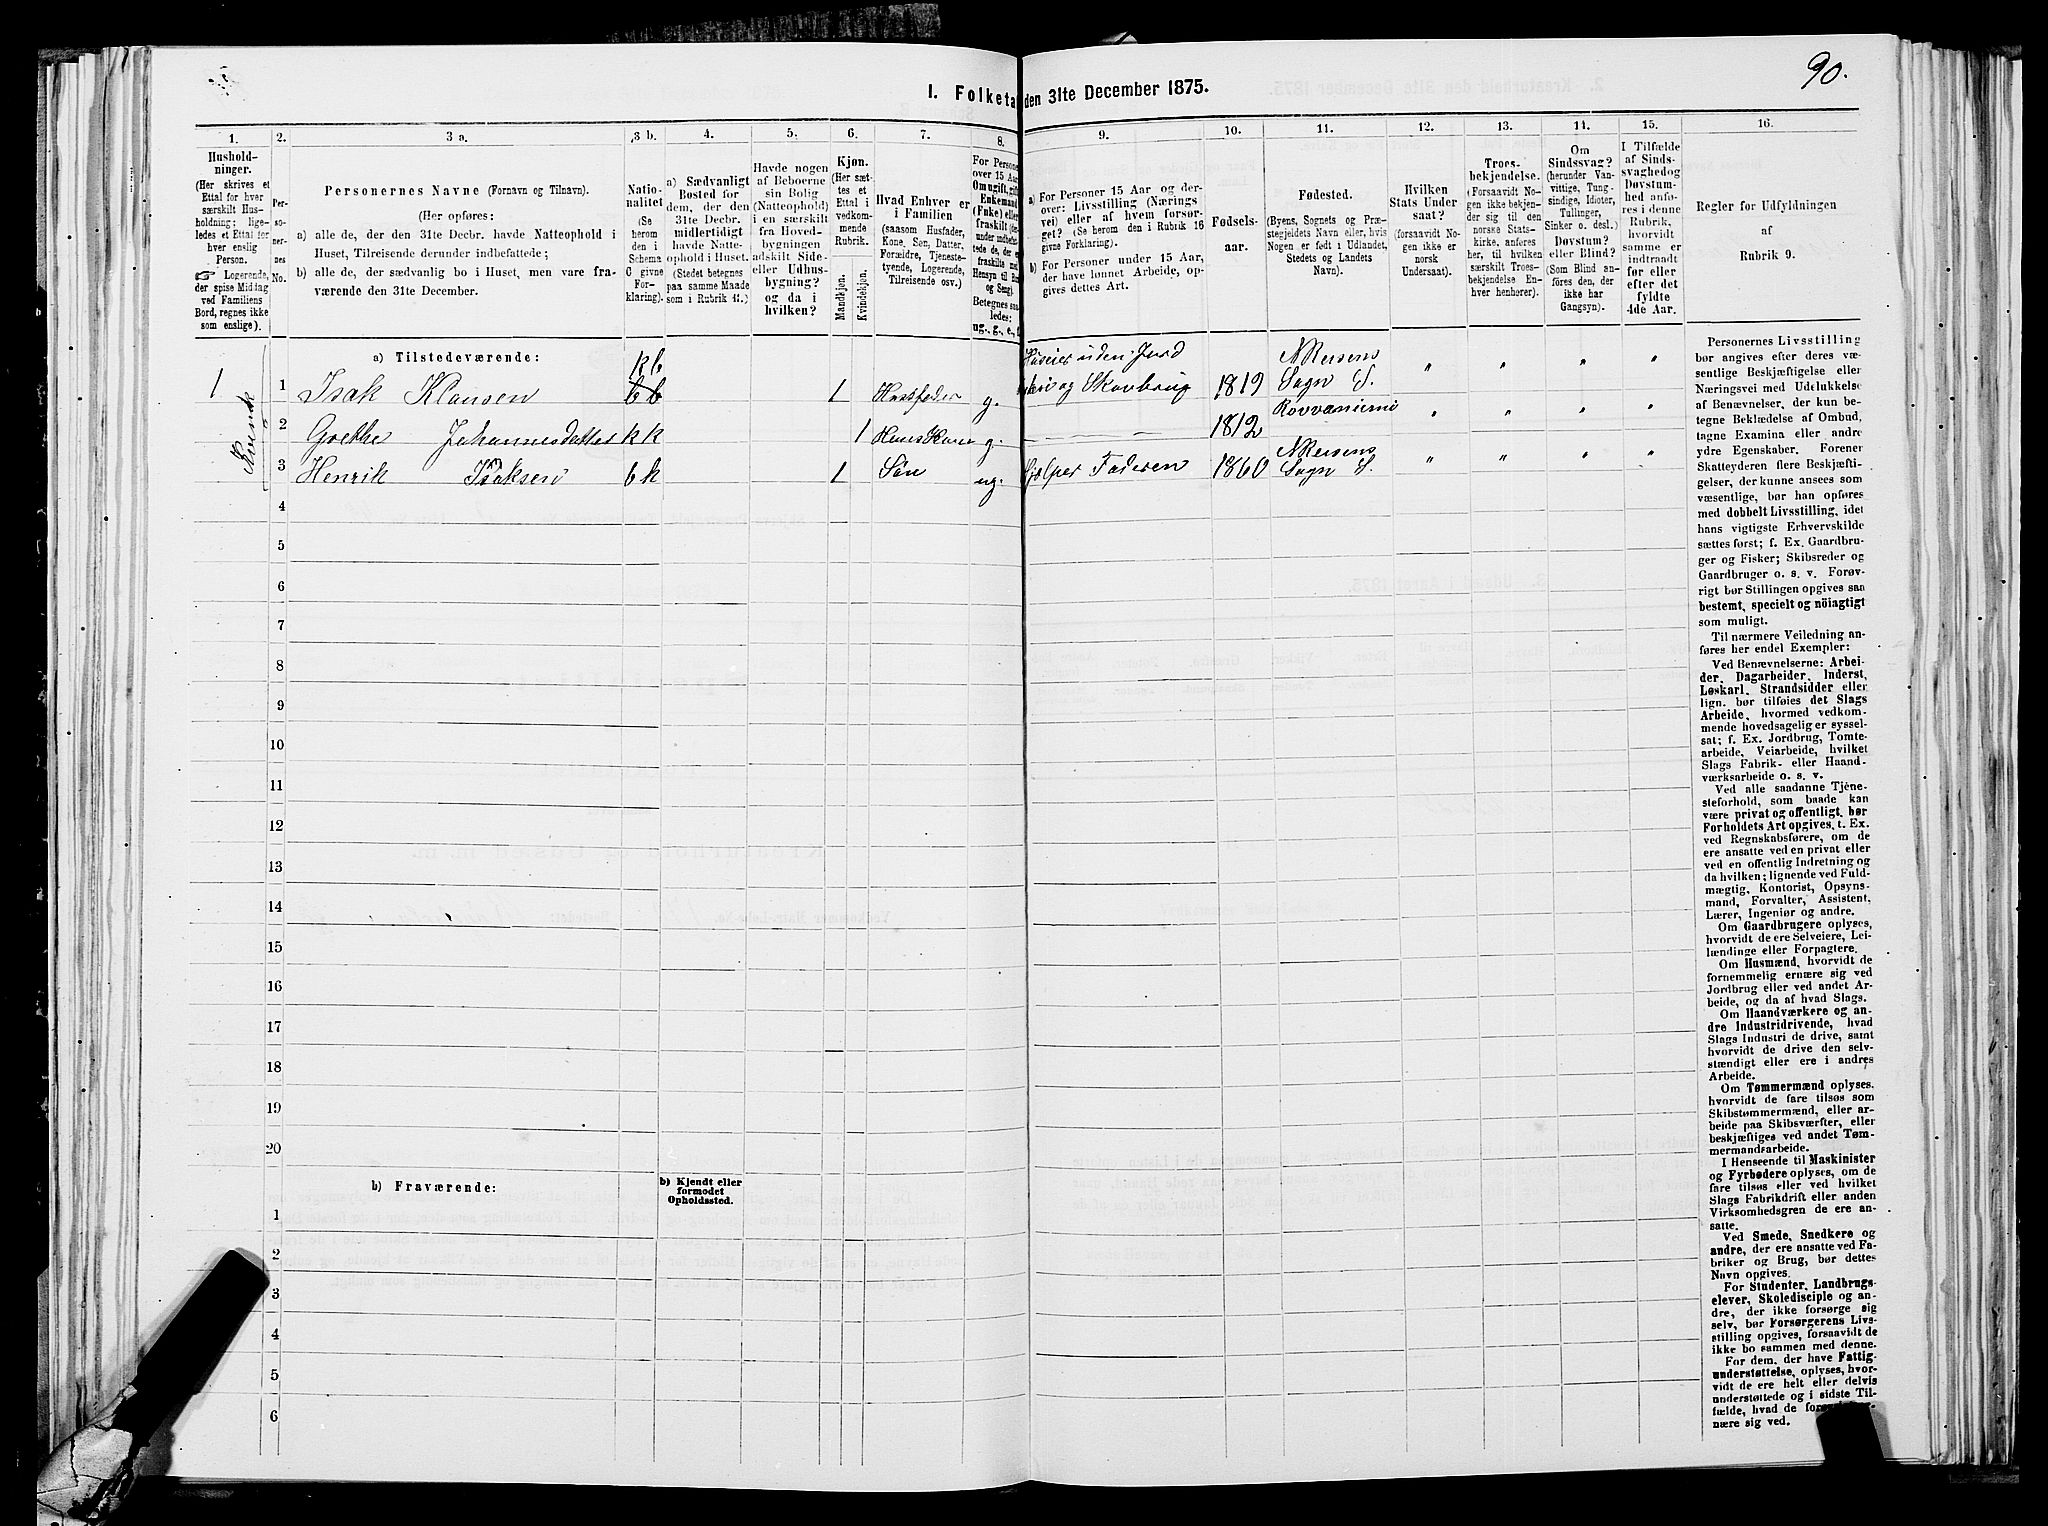 90.
I. Folketa den 31te December 1875.
1. 2. 3 a. 3 b. 4. 5. 6. 7. 8. 9. 10. 11. 12. 13. 14. 15. 16.
Hushold-
ninger.
(Her skrives et
Ettal for hver
særskilt Hus-
holdning; lige-
ledes et Ettal for
hver enslig
Person.
☞ Logerende,
der spise Middag
ved Familiens
Bord, regnes ikke
som enslige).
Per-
so-
ner-
nes
No.
Personernes Navne (Fornavn og Tilnavn).
(Her opføres:
a) alle de, der den 31te Decbr. havde Natteophold i
Huset, Tilreisende derunder indbefattede;
b) alle de, der sædvanlig bo i Huset, men vare fra-
værende den 31te December.
Natio-
nalitet
(Se
herom
den i
Schema
C givne
For-
klaring).
a) Sædvanligt
Bosted for
dem, der den
31te Decbr.
midlertidigt
havde Natte-
ophold i Huset.
(Stedet betegnes
paa samme Maade
som i Rubrik 11.)
Havde nogen
af Beboerne
sin Bolig
(Natteophold)
i en særskilt
fra Hoved-
bygningen
adskilt Side-
eller Udhus-
bygning?
og da i
hvilken?
Kjøn.
(Her sæt-
tes et
Ettal i
vedkom-
mende
Rubrik.
Mandkjøn.
Kvindekjøn.
Hvad Enhver er
i Familien
(saasom Husfader,
Kone, Søn, Datter,
Forældre, Tjeneste-
tyende, Logerende,
Tilreisende osv.)
For Personer
over 15 Aar:
Om ugift, gift,
Enkemand
(Enke) eller
fraskilt
Betegnes saa-
ledes:
ug., g., e.,
a) For Personer 15 Aar og der-
over: Livsstilling (Nærings
vei) eller af hvem forsør-
get? (Se herom de i Rubrik 16
givne Forklaring).
b) For Personer under 15 Aar,
der have lønnet Arbeide, op-
gives dettes Art.
Fødsels-
aar.
Fødested.
(Byens, Sognets og Præ-
stegjeldets Navn eller, hvis
Nogen er født i Udlandet,
Stedets og Landets
Navn).
Hvilken
Stats Under
saat?
(forsaavidt No-
gen ikke er
norsk
Undersaat).
Troes-
bekjendelse.
(Forsaavidt No-
gen ikke bekjen-
der sig til den
norske Stats-
kirke, anføres
her, til hvilken
særskilt Troes-
bekjendelse En-
hver henhører).
Om
Sindssvag?
(herunder Van-
vittige, Tung-
sindige, Idioter,
Tullinger,
Sinker o. desl.)
Døvstum?
eller Blind?
(Som Blind an-
føres den, der
ikke har
Gangsyn).
I Tilfælde
af Sinds-
svaghed og
Døvstum-
hed anfø-
res i denne
Rubrik,
hvorvidt
samme er
indtraadt
før eller
efter det
fyldte
4de Aar.
Regler for Udfyldningen
af
Rubrik 9.
a) Tilstedeværende:
kb
1 1 Isak Klausen bb 1 Husfader g. uden Jord og Skovbrug 1819 Sogn S. " " " "
Kvensk
2 Grethe Johannesdatter kk 1 Huus Kone g. — — — 1812 Rovvaniemi " " " "
3 Henrik Isaksen bk 1 Søn ug. Hjelper Faderen 1860 Sogn S. " " " "
4
5
6
7
8
9
10
11
12
13
14
15
16
17
18
19
20
b) Fraværende:
b) Kjendt eller
formodet
Opholdssted.
1
2
3
4
5
6
Personernes Livsstilling
bør angives efter deres væ-
sentlige Beskjæftigelse eller
Næringsvei med Udelukkelse
af Benævnelser, der kun be-
tegne Beklædelse af Ombud,
tagne Examina eller andre
ydre Egenskaber. Forener
Skatteyderen flere Beskjæftig-
elser, der kunne ansees som
væsentlige, bør han opføres
med dobbelt Livsstilling, idet
hans vigtigste Erhvervskilde
sættes først; f. Ex. Gaardbru-
ger og Fisker; Skibsreder og
Gaardbruger o. s. v. Forøv-
rigt bør Stillingen opgives saa
bestemt, specielt og nöiagtigt
som muligt.
Til nærmere Veiledning an-
føres her endel Exempler:
Ved Benævnelserne: Arbei-
der, Dagarbeider, Inderst,
Løskarl, Strandsidder eller
lign. bør tilføies det Slags
Arbeide, hvormed vedkom-
mende hovedsagelig er syssel-
sat; f. Ex. Jordbrug, Tomte-
arbeide, Veiarbeide, hvilket
Slags Fabrik- eller Haand-
værksarbeide o. s. v.
Ved alle saadanne Tjene-
steforhold, som baade kan
være privat og offentligt, bør
Forholdets Art opgives, t. Ex.
ved Regnskabsførere, om de
ere ansatte ved en privat eller
ved en offentlig Indretning og
da hvilken; lignende ved Fuld-
mægtig, Kontorist, Opsyns-
mand, Forvalter, Assistent,
Lærer, Ingeniør og andre.
Om Gaardbrugere oplyses,
hvorvidt de ere Selveiere, Lei-
lændinge eller Forpagtere.
Om Husmænd, hvorvidt de
fornemmelig ernære sig ved
Jordbrug eller ved andet Ar-
beide, og da af hvad Slags.
Om Haandværkere og an-
dre Industridrivende, hvad
Slags Industri de drive, samt
hvorvidt de drive den selv-
stændigt eller ere i andres
Arbeide.
Om Tømmermænd oplyses,
hvorvidt de fare tilsøs som
Skibstømmermænd, eller ar-
beide paa Skibsværfter, eller
beskjæftiges ved andet Tøm-
mermandsarbeide.
I Henseende til Maskinister
og Fyrbødere oplyses, om de
fare tilsøs eller ved hvilket
Slags Fabrikdrift eller anden
Virksomhedsgren de ere an-
satte.
Ved Smede, Snedkere og
andre, der ere ansatte ved Fa-
briker og Brug, bør dettes
Navn opgives.
For Studenter, Landbrugs-
elever, Skoledisciple og an-
dre, der ikke forsørge sig
selv, bør Forsørgerens Livs-
stilling opgives, forsaavidt de
ikke bo sammen med denne.
For dem, der have Fattig-
understøttelse, oplyses, hvor-
vidt de ere helt eller delvis
understøttede og i sidste Til-
fælde, hvad de
nære sig ved.